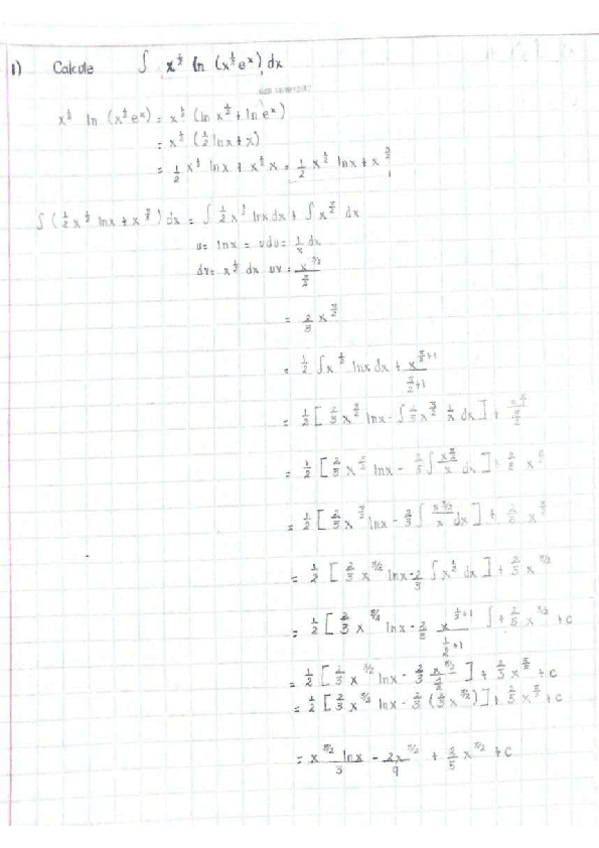 1) Calcule ∫ x^½ ln (x^½ e^x) dx
x^½ ln (x^½ e^x) = x^½ (ln x^½ + ln e^x)
= x^½ (½ lnx + x)
= ½ x^½ lnx + x^½ x = ½ x^½ lnx + x^3/2
∫ (½ x^½ lnx + x^3/2) dx = ∫ ½ x^½ lnx dx + ∫ x^3/2 dx
u = lnx = vdu = 1/x dx
dv = x^½ dx uv = x^3/2 / 3/2
= 2/3 x^3/2
= ½ ∫ x^½ lnx dx + x^3/2+1 / 3/2+1
= ½ [ 2/3 x^3/2 lnx - ∫ 2/3 x^3/2 1/x dx ] + x^5/2 / 5/2
= ½ [ 2/3 x^3/2 lnx - 2/3 ∫ x^3/2 / x dx ] + 2/5 x^5/2
= ½ [ 2/3 x^3/2 lnx - 2/3 ∫ x^3/2 / x dx ] + 2/5 x^5/2
= ½ [ 2/3 x^3/2 lnx - 2/3 ∫ x^½ dx ] + 2/5 x^5/2
= ½ [ 2/3 x^3/2 lnx - 2/3 x^½+1 / ½+1 ] + 2/5 x^5/2 + c
= ½ [ 2/3 x^3/2 lnx - 2/3 x^3/2 / 3/2 ] + 2/5 x^5/2 + c
= ½ [ 2/3 x^3/2 lnx - 2/3 (2/3 x^3/2) ] + 2/5 x^5/2 + c
= x^3/2 lnx / 3 - 2x^3/2 / 9 + 2/5 x^5/2 + c